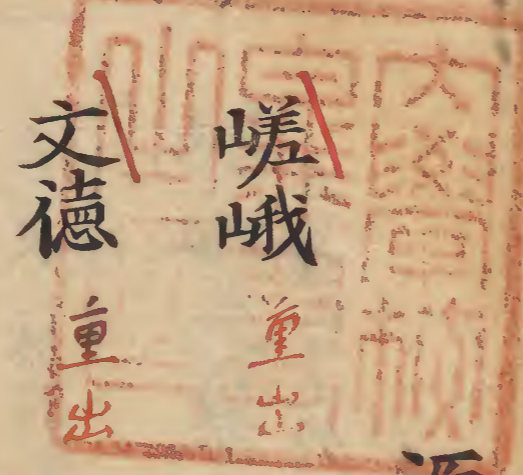 嵯峨 重出
文徳 重出